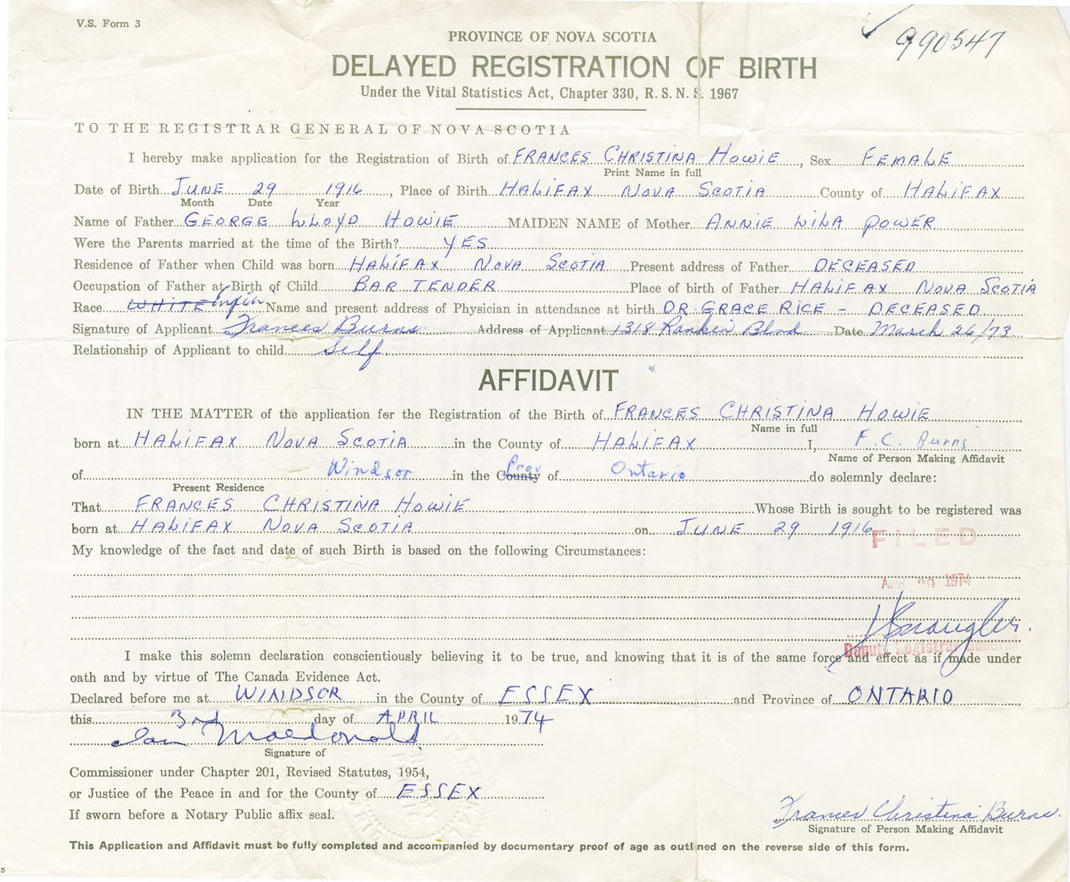 V.S. Form 3
990547
PROVINCE OF NOVA SCOTIA
DELAYED REGISTRATION OF BIRTH
Under the Vital Statistics Act, Chapter 330, R.S.N.S. 1967
TO THE REGISTRAR GENERAL OF NOVA SCOTIA
I hereby make application for the Registration of Birth of FRANCES CHRISTINA HOWIE, Sex FEMALE
Print Name in full
Date of Birth JUNE 29 1916, Place of Birth HALIFAX NOVA SCOTIA County of HALIFAX
Month Date Year
Name of Father GEORGE LLOYD HOWIE MAIDEN NAME of Mother ANNIE LILA POWER
Were the Parents married at the time of the Birth? YES
Residence of Father when Child was born HALIFAX NOVA SCOTIA Present address of Father DECEASED
Occupation of Father at Birth of Child BAR TENDER Place of birth of Father HALIFAX NOVA SCOTIA
Race WHITE Name and present address of Physician in attendance at birth DR GRACE RICE - DECEASED
Signature of Applicant Frances Burns Address of Applicant 1318 Rankin Blvd Date March 26/73
Relationship of Applicant to child Self
AFFIDAVIT
IN THE MATTER of the application for the Registration of the Birth of FRANCES CHRISTINA HOWIE
Name in full
born at HALIFAX NOVA SCOTIA in the County of HALIFAX I, F.C. Burns
Name of Person Making Affidavit
of Windsor in the County Prov of Ontario do solemnly declare:
Present Residence
That FRANCES CHRISTINA HOWIE Whose Birth is sought to be registered was
born at HALIFAX NOVA SCOTIA on JUNE 29 1916
FILED
My knowledge of the fact and date of such Birth is based on the following Circumstances:
APR 29 1974
Deputy Registrar General
I make this solemn declaration conscientiously believing it to be true, and knowing that it is of the same force and effect as if made under
oath and by virtue of The Canada Evidence Act.
Declared before me at WINDSOR in the County of ESSEX and Province of ONTARIO
this 3rd day of APRIL 1974
Ian Macdonald
Signature of
Commissioner under Chapter 201, Revised Statutes, 1954,
or Justice of the Peace in and for the County of ESSEX
If sworn before a Notary Public affix seal.
Frances Christina Burns
Signature of Person Making Affidavit
This Application and Affidavit must be fully completed and accompanied by documentary proof of age as outlined on the reverse side of this form.
5